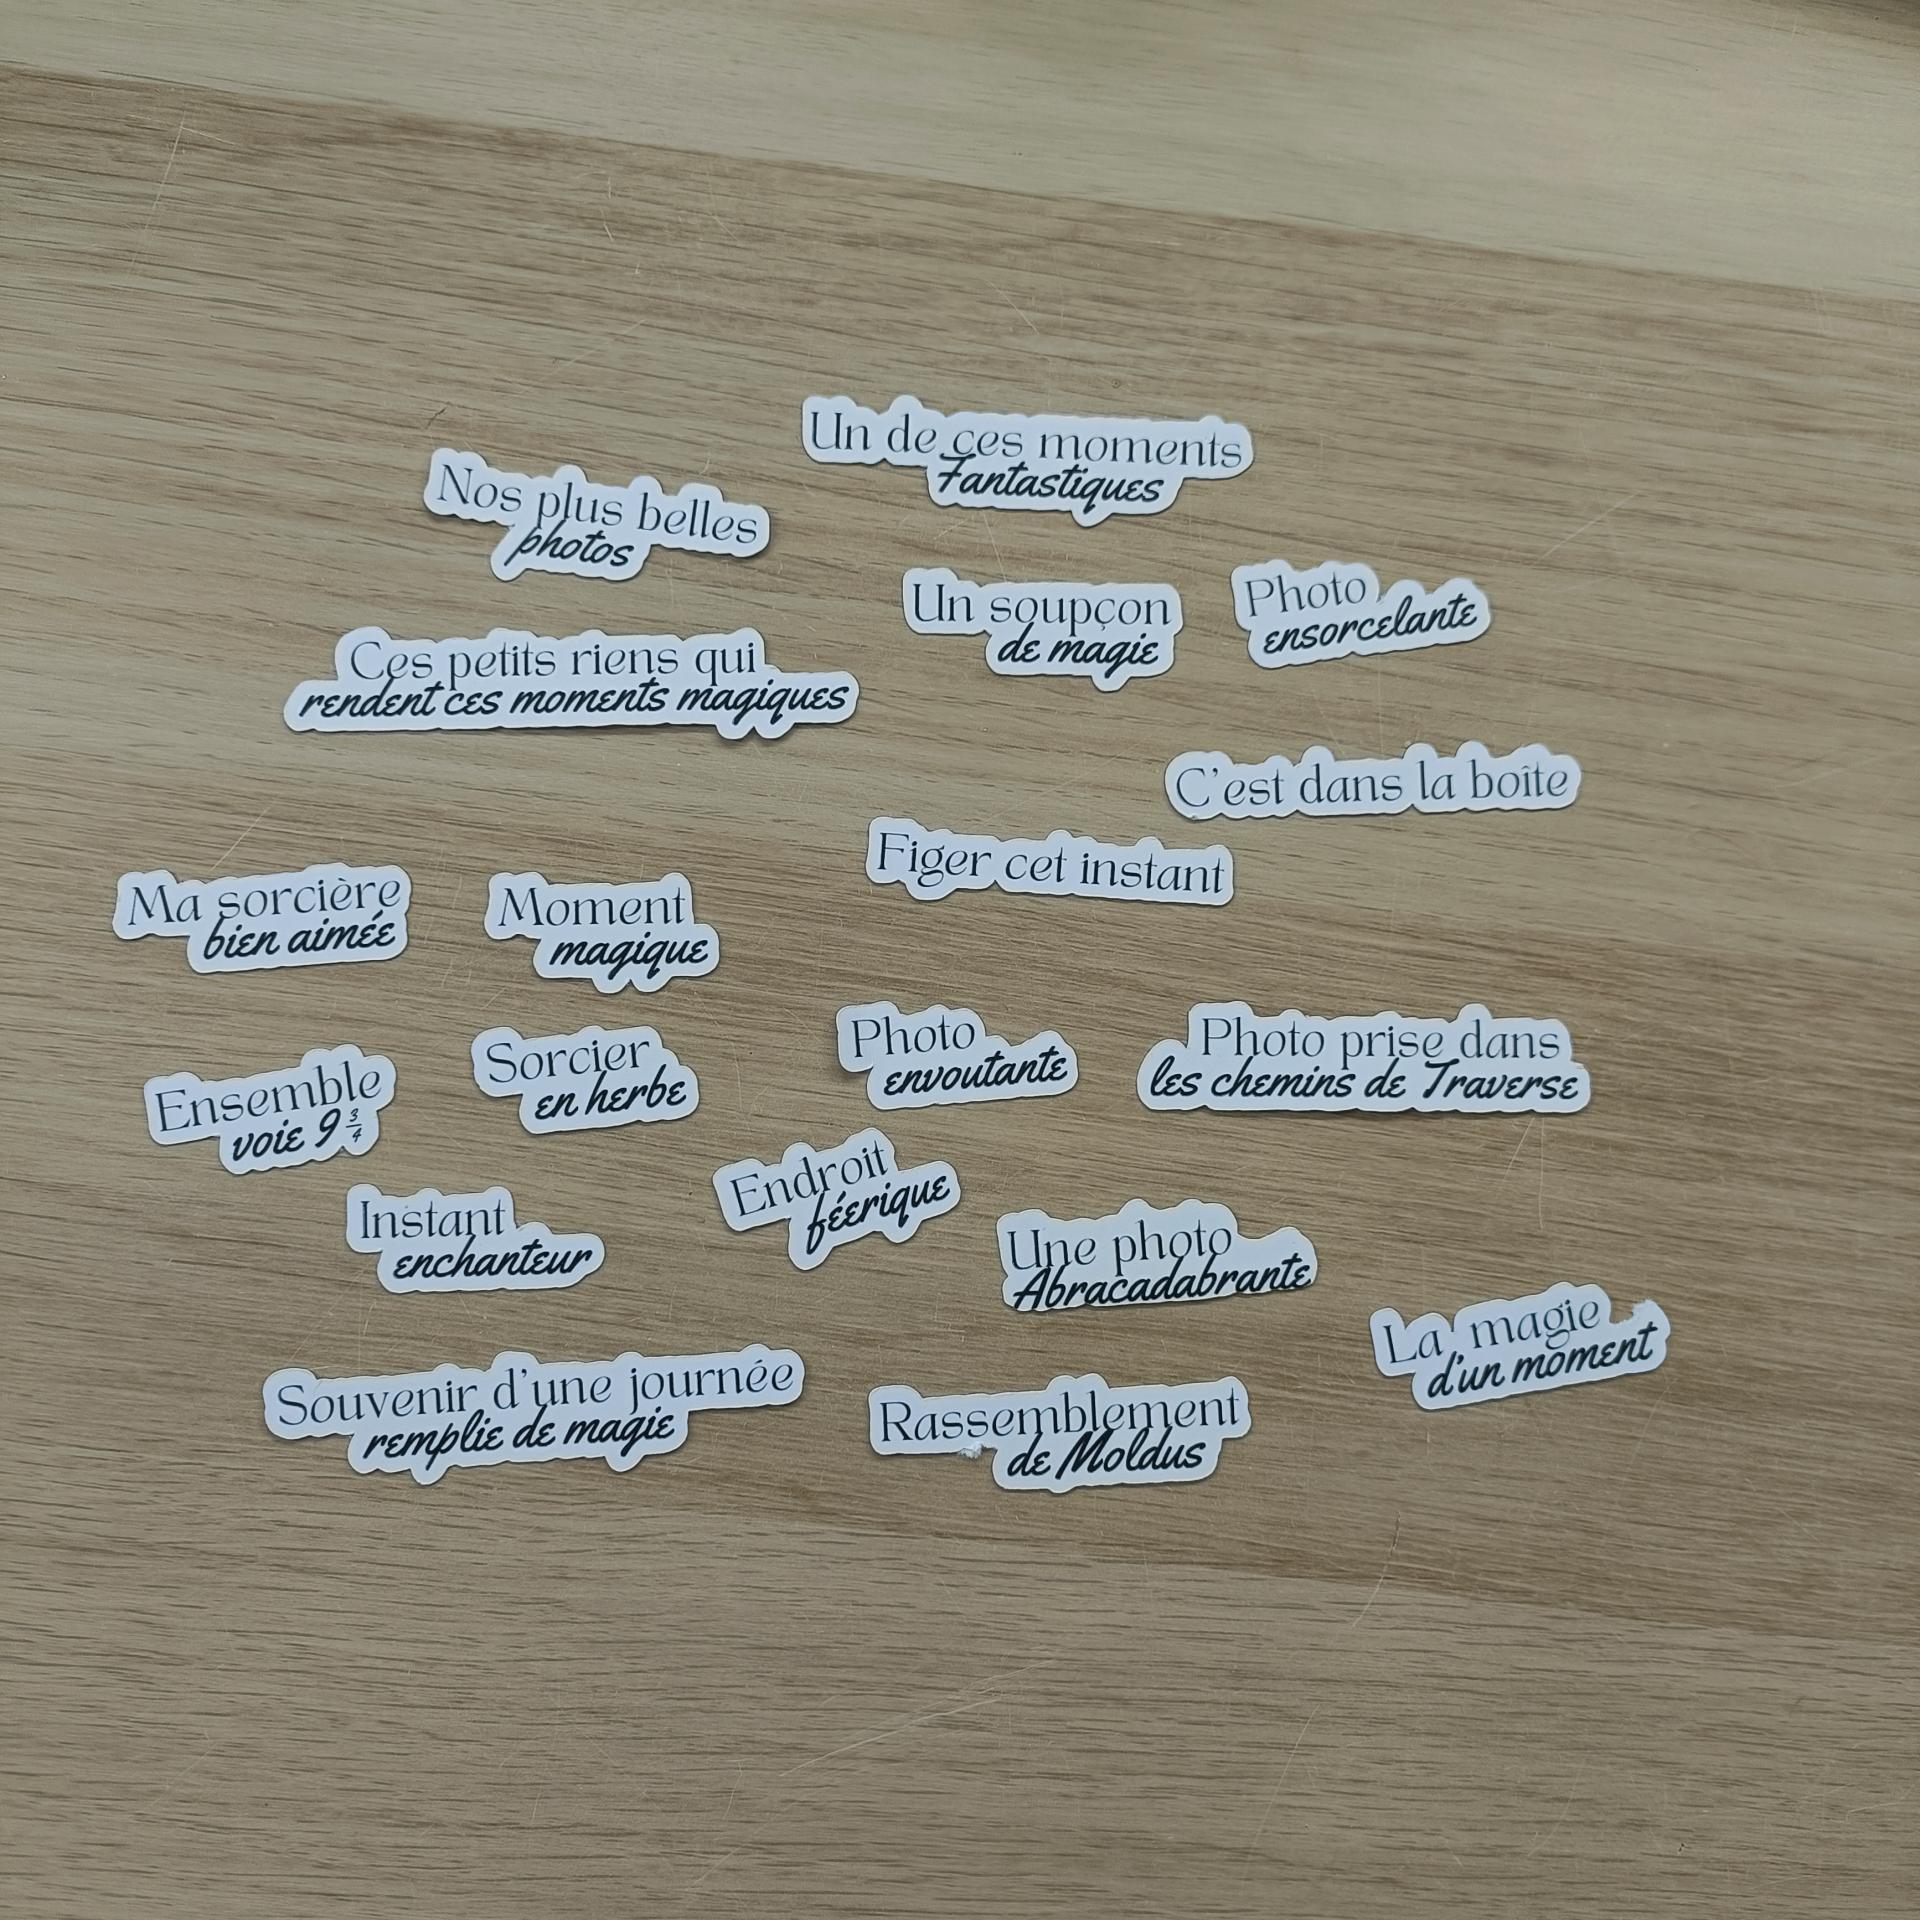 Un de ces moments
Fantastiques
Nos plus belles
photos
Un soupçon
de magie
Photo
ensorcelante
Ces petits riens qui
rendent ces moments magiques
C'est dans la boîte
Figer cet instant
Ma sorcière
bien aimée
Moment
magique
Photo
envoutante
Photo prise dans
les chemins de Traverse
Sorcier
en herbe
Ensemble
voie 9 3/4
Endroit
féerique
Instant
enchanteur
Une photo
Abracadabrante
La magie
d'un moment
Souvenir d'une journée
remplie de magie
Rassemblement
de Moldus